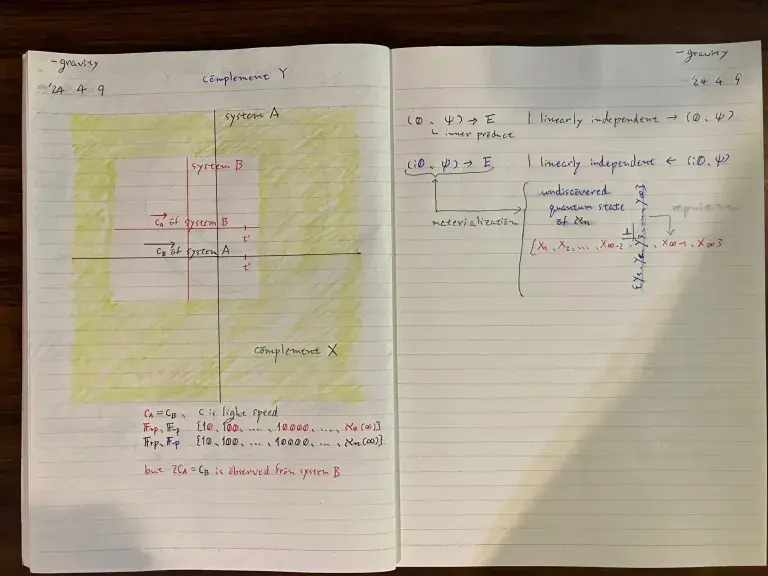 -gravity
'24 4 9
complement Y
system A
system B
C_A of system B
t'
C_B of system A
t'
complement X
C_A = C_B, C is light speed
F+p, F-p {10, 100, ..., 10000, ..., ℵ0(∞)}
F+p, F-p {10, 100, ..., 10000, ..., ℵn(∞)}
but 2C_A = C_B is observed from system B
-gravity
'24 4 9
(0, ψ) → E | linearly independent → (0, ψ)
inner produce
(i0, ψ) → E | linearly independent ← (i0, ψ)
materialization
undiscovered
quantum state
of ℵn
{X1, X2, ..., X∞-2, , X∞-1, X∞}